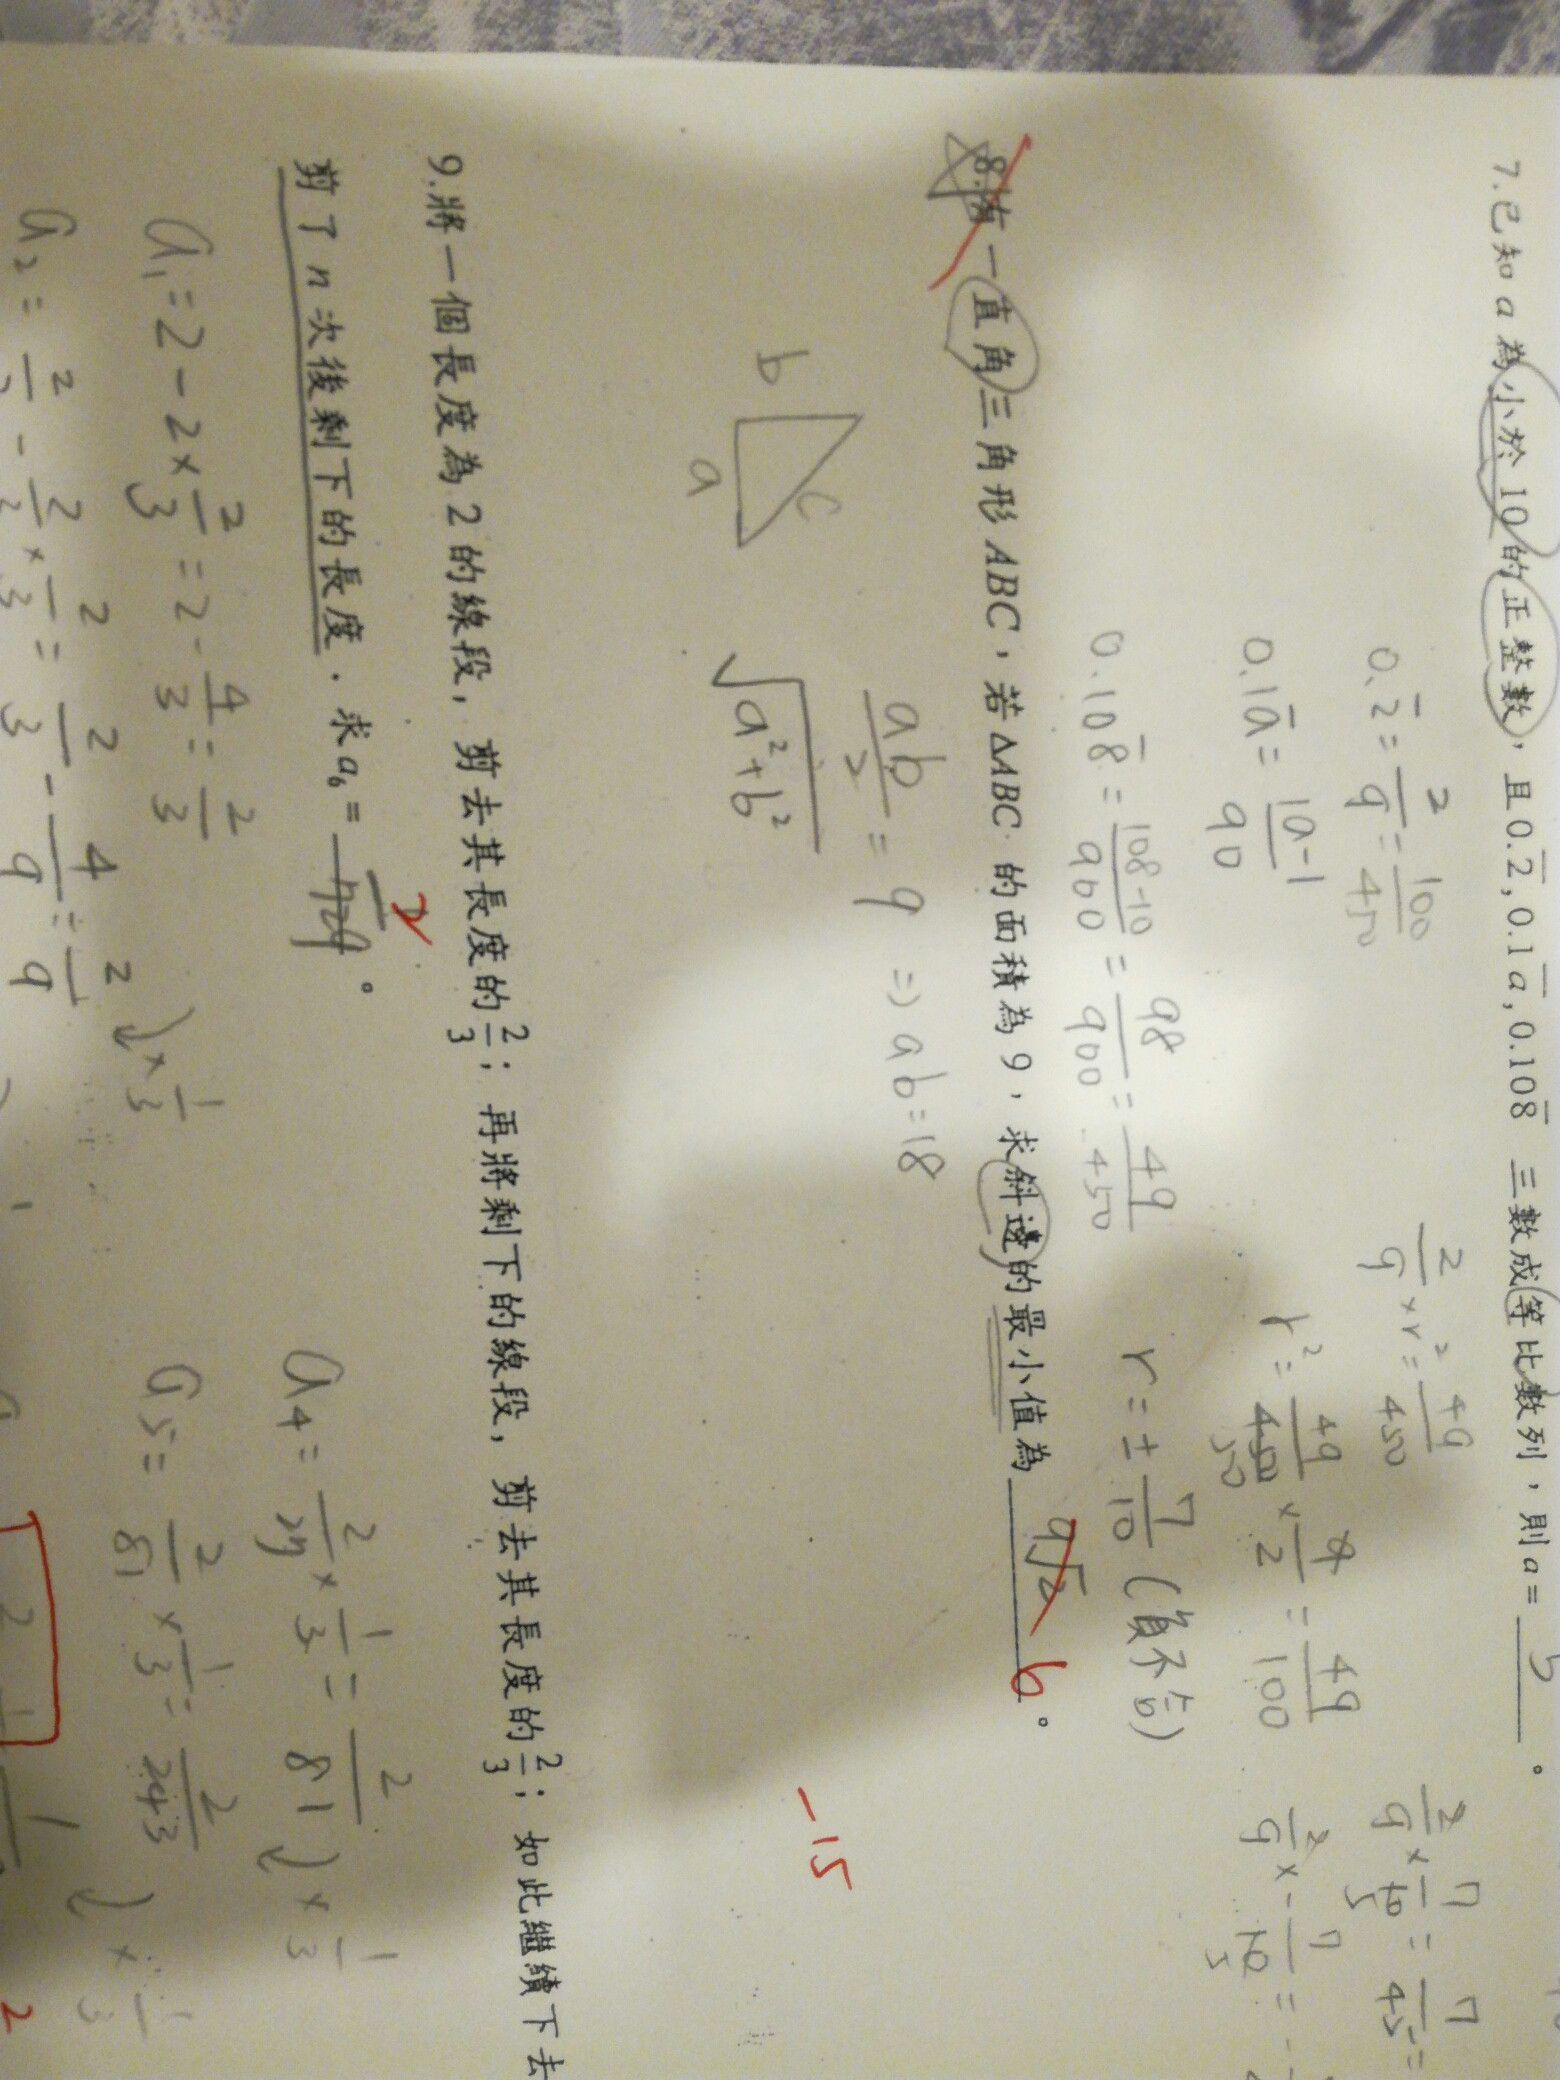 7.已知 a 為小於 10 的正整數，且0.2̅, 0.1a̅, 0.108̅ 三數成等比數列，則 a = 5 。
0.2̅ = 2/9 = 100/450
0.1a̅ = 1a-1/90
0.108̅ = 108-10/900 = 98/900 = 49/450
2/9 × r² = 49/450
r² = 49/450 × 9/2 = 49/100
50
r = ± 7/10 (負不合)
2/9 × 7/10 = 7/45 =
5
2/9 × - 7/10 = -
5
8.有一直角三角形 ABC，若 ΔABC 的面積為 9，求斜邊的最小值為 9√2 6 。
b
a
c
ab/2 = 9 ⇒ ab = 18
√a²+b²
-15
9.將一個長度為 2 的線段，剪去其長度的 2/3；再將剩下的線段，剪去其長度的 2/3；如此繼續下去
剪了 n 次後剩下的長度．求 a₆ = 2/729 。
a₁ = 2 - 2 × 2/3 = 2 - 4/3 = 2/3
a₂ = 2/3 - 2/3 × 2/3 = 2/3 - 4/9 = 2/9
× 1/3
a₄ = 2/27 × 1/3 = 2/81
× 1/3
a₅ = 2/81 × 1/3 = 2/243
× 1/3